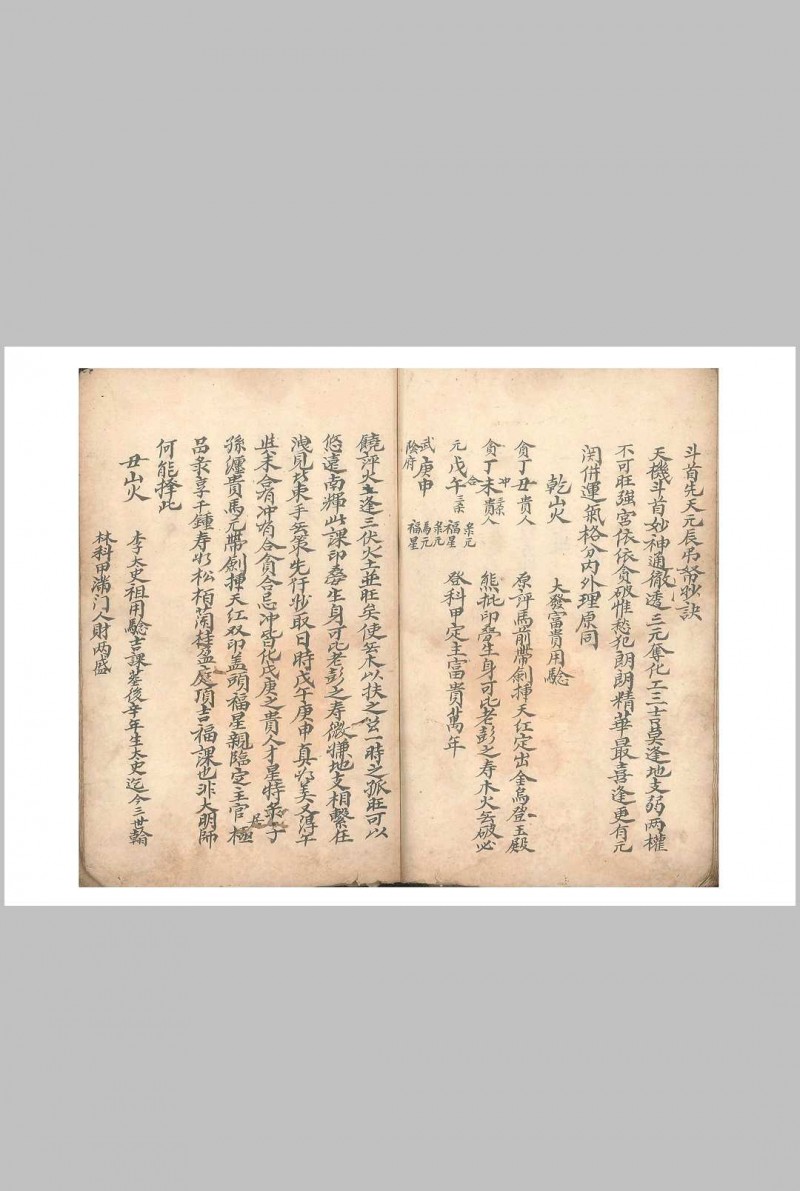 斗首先天元辰吊替妙訣
天機斗首妙神通徹透三元奪化工三吉莫逢地支弱两權
不可旺強宮依依貪破惟愁犯朗朗精華最喜逢更有元
関併運氣格分内外理原同
乾山火
大發富貴用驗
貪丁丑貴人
冲
貪丁未貴人
元戊午
合
福星
武庚申
陰府
馬元
福星
原評馬前帶劍揮天紅定出金烏登玉殿
熊批印壘生身可比老彭之寿木火去破必
登科甲定主富貴萬年
饒評火土逢三伏火土並旺矣使苦木以扶之一時之孤旺可以
悠遠南輝此課印壘生身可比老彭之寿微嫌地支相繫在
洩見此束手無策先仔妙取日時戊午庚申真為美又得午
與未合有冲有合貪合忌冲皆化戊庚之貴人才星特子
孫纏貴馬元帶劍揮天紅双印盖頭福星親臨定主官居極
品彔享千鍾寿如松栢蘭桂盈庭頂吉福課也非大明師
何能择此
丑山火
李太史祖用驗吉課塟後辛年生太史迄今三世翰
林科甲满门人財两盛